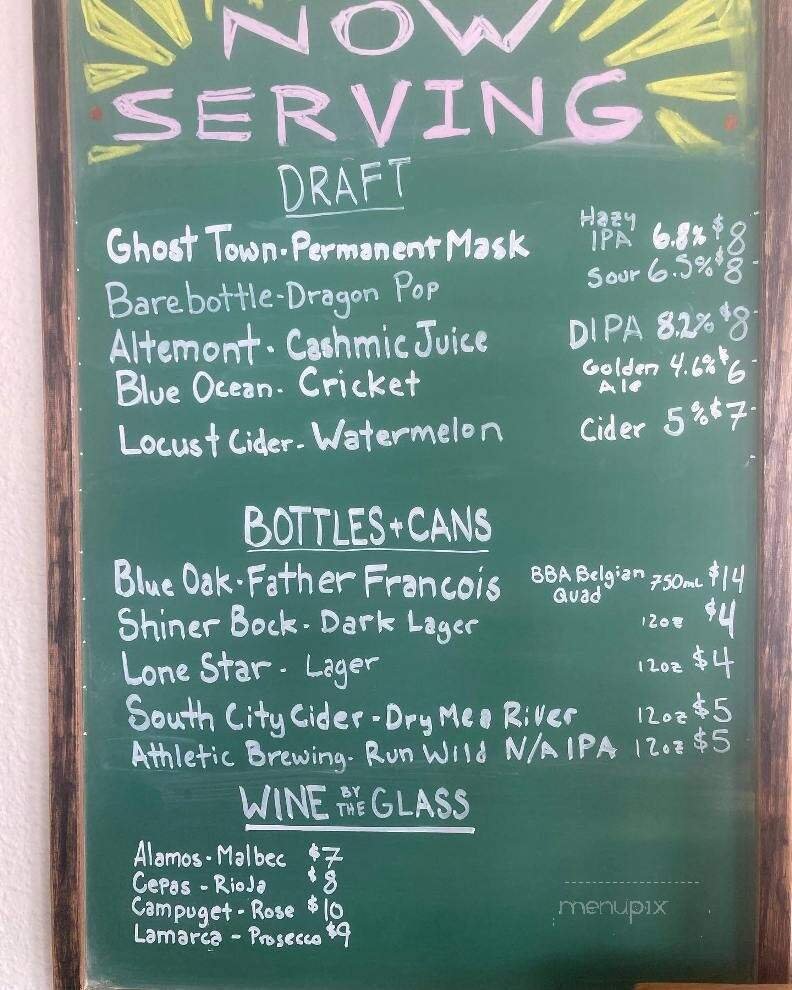 NOW
SERVING
DRAFT
Ghost Town - Permanent Mask Hazy IPA 6.8% $8
Barebottle - Dragon Pop Sour 6.5% $8
Altemont - Cashmic Juice DIPA 8.2% $8
Blue Ocean - Cricket Golden Ale 4.6% $6
Locust Cider - Watermelon Cider 5% $7
BOTTLES + CANS
Blue Oak - Father Francois BBA Belgian Quad 750mL $14
Shiner Bock - Dark Lager 12oz $4
Lone Star - Lager 12oz $4
South City Cider - Dry Mea River 12oz $5
Athletic Brewing - Run Wild N/A IPA 12oz $5
WINE BY THE GLASS
Alamos - Malbec $7
Cepas - Rioja $8
Campuget - Rose $10
Lamarca - Prosecco $9
menupix